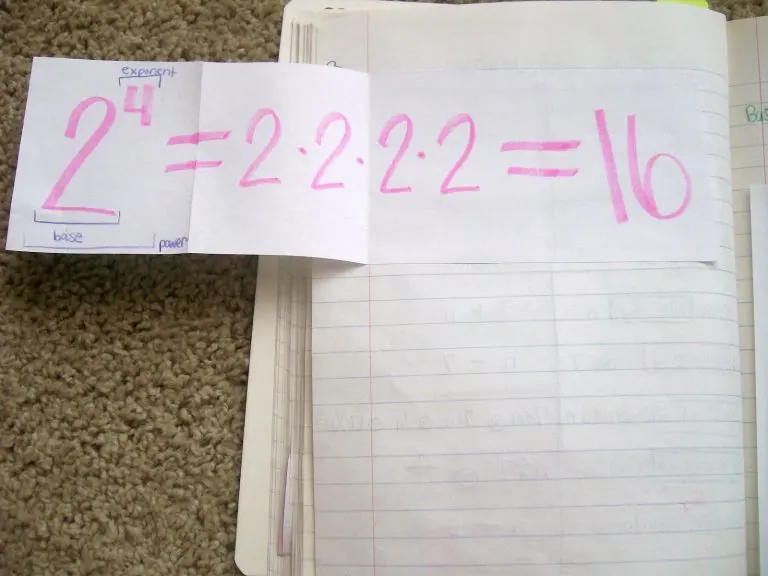 exponent
2⁴ = 2·2·2·2 = 16
base
power